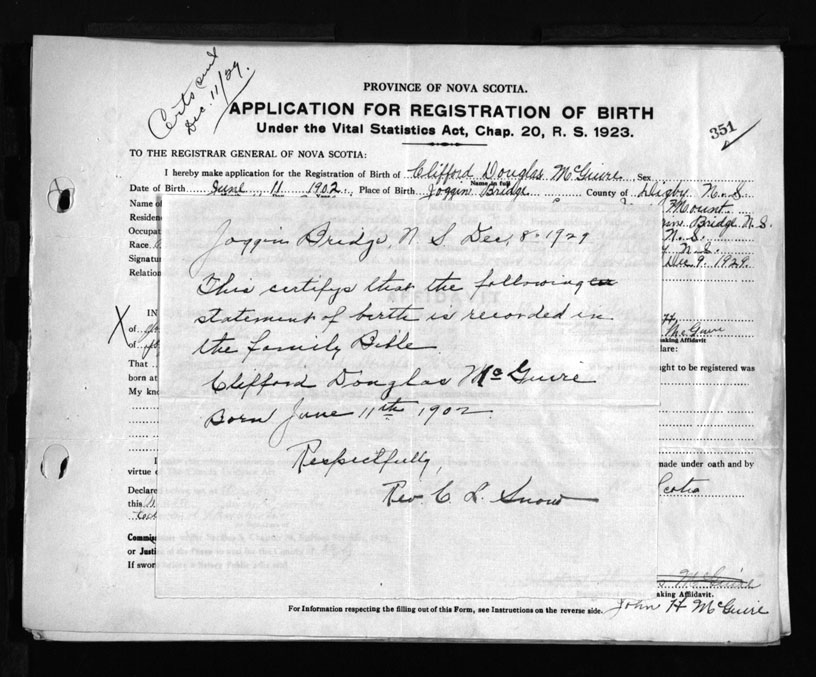 Certs sent
Dec. 11/29.
PROVINCE OF NOVA SCOTIA.
APPLICATION FOR REGISTRATION OF BIRTH
Under the Vital Statistics Act, Chap. 20, R. S. 1923.
351
TO THE REGISTRAR GENERAL OF NOVA SCOTIA:
I hereby make application for the Registration of Birth of Clifford Douglas McGuire Sex
Name in full
Date of Birth June 11 1902. Place of Birth Joggin Bridge County of Digby N. S.
Name of Mount
Residen Bridge N. S.
Occupat N. S.
Race N. S.
Signatur Dec 9. 1929.
Relation
Joggin Bridge, N. S. Dec, 8 1929
This certifys that the following
statement of birth is recorded in
the family Bible
Clifford Douglas McGuire
Born June 11th 1902.
Respectfully,
Rev. C. L. Snow
AFFIDAVIT
X
IN
of
of McGuire
making Affidavit
lare:
That ought to be registered was
born at
My kno
I made under oath and by
virtue o
Declare Scotia
this
Commiss
or Justi
If swor
McGuire
aking Affidavit.
For Information respecting the filling out of this Form, see Instructions on the reverse side. John H McGuire